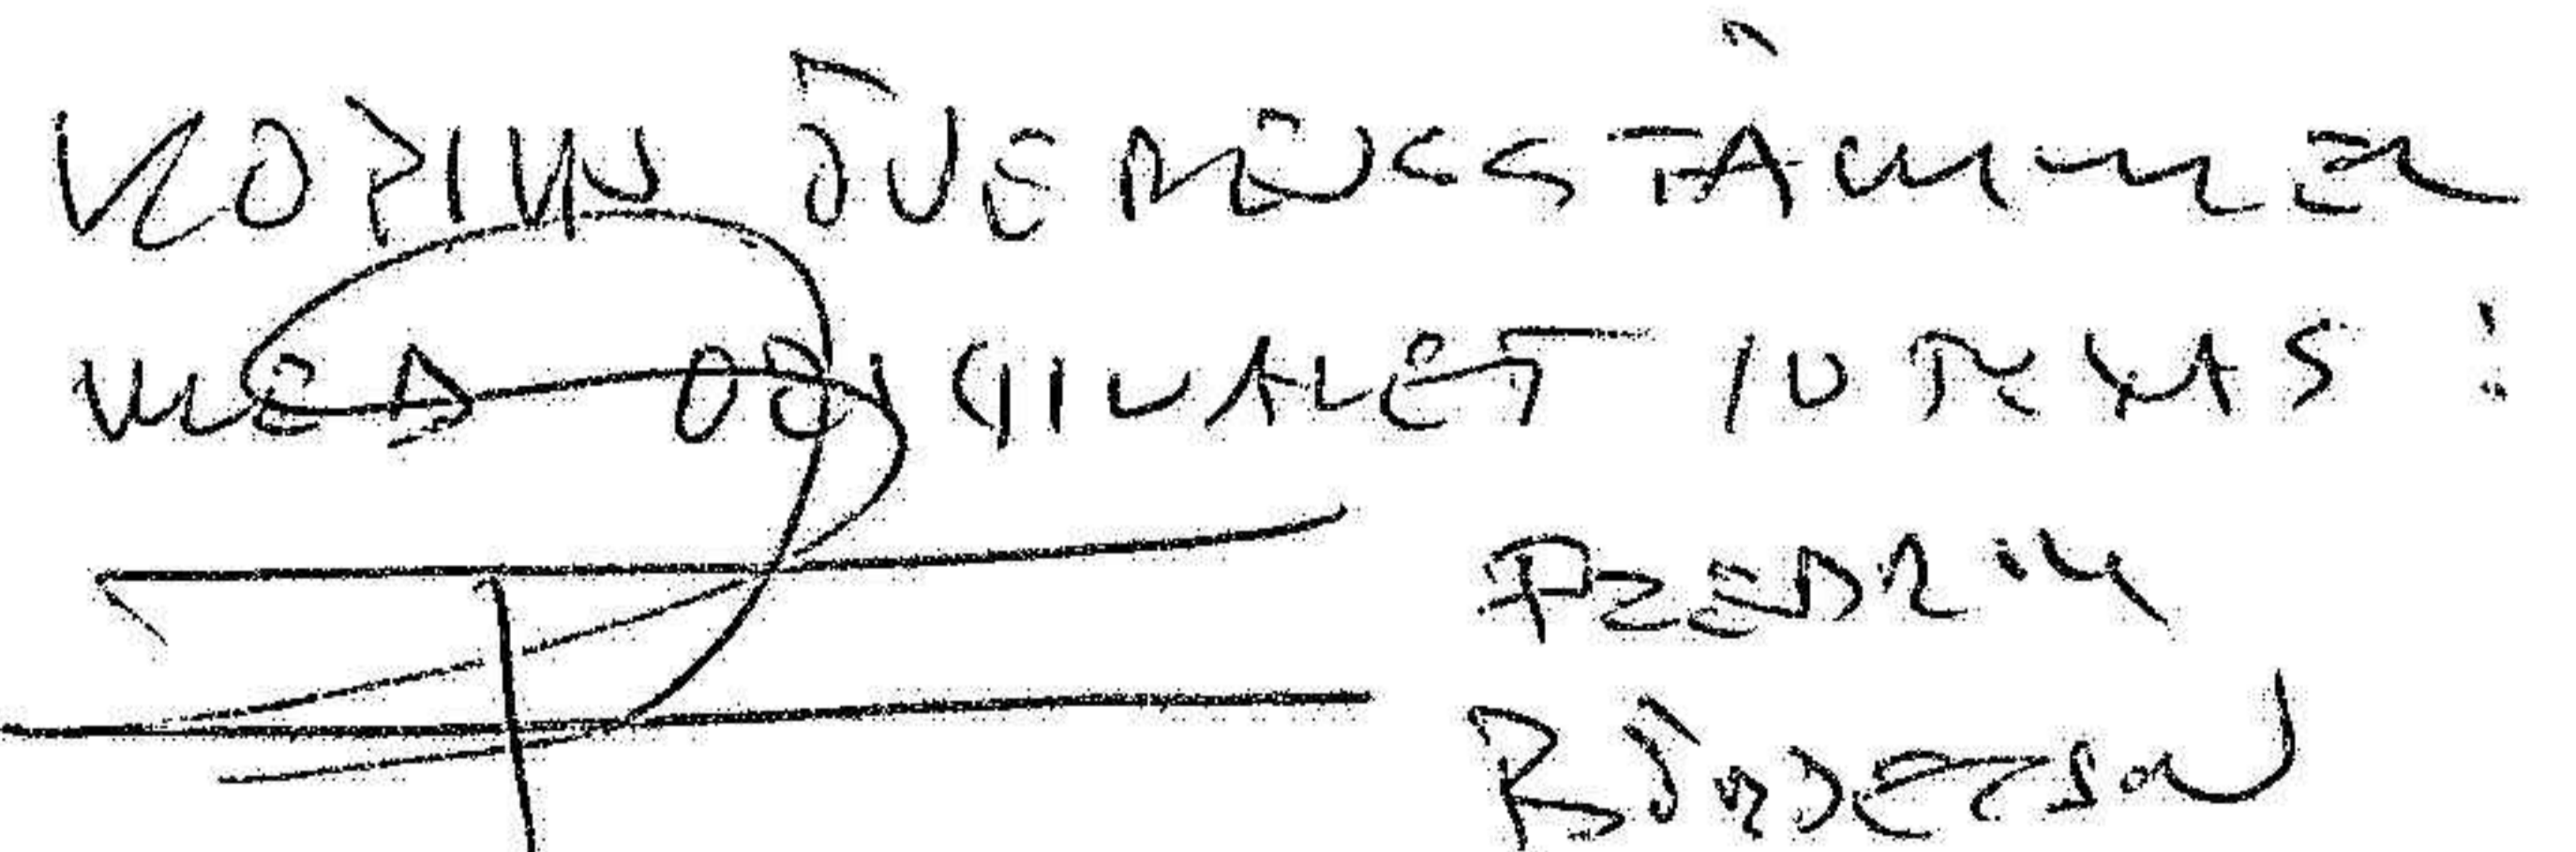 KOPIAN ÖVERENSSTÄMMER
MED ORIGINALET INTYGAS:
FREDRIK